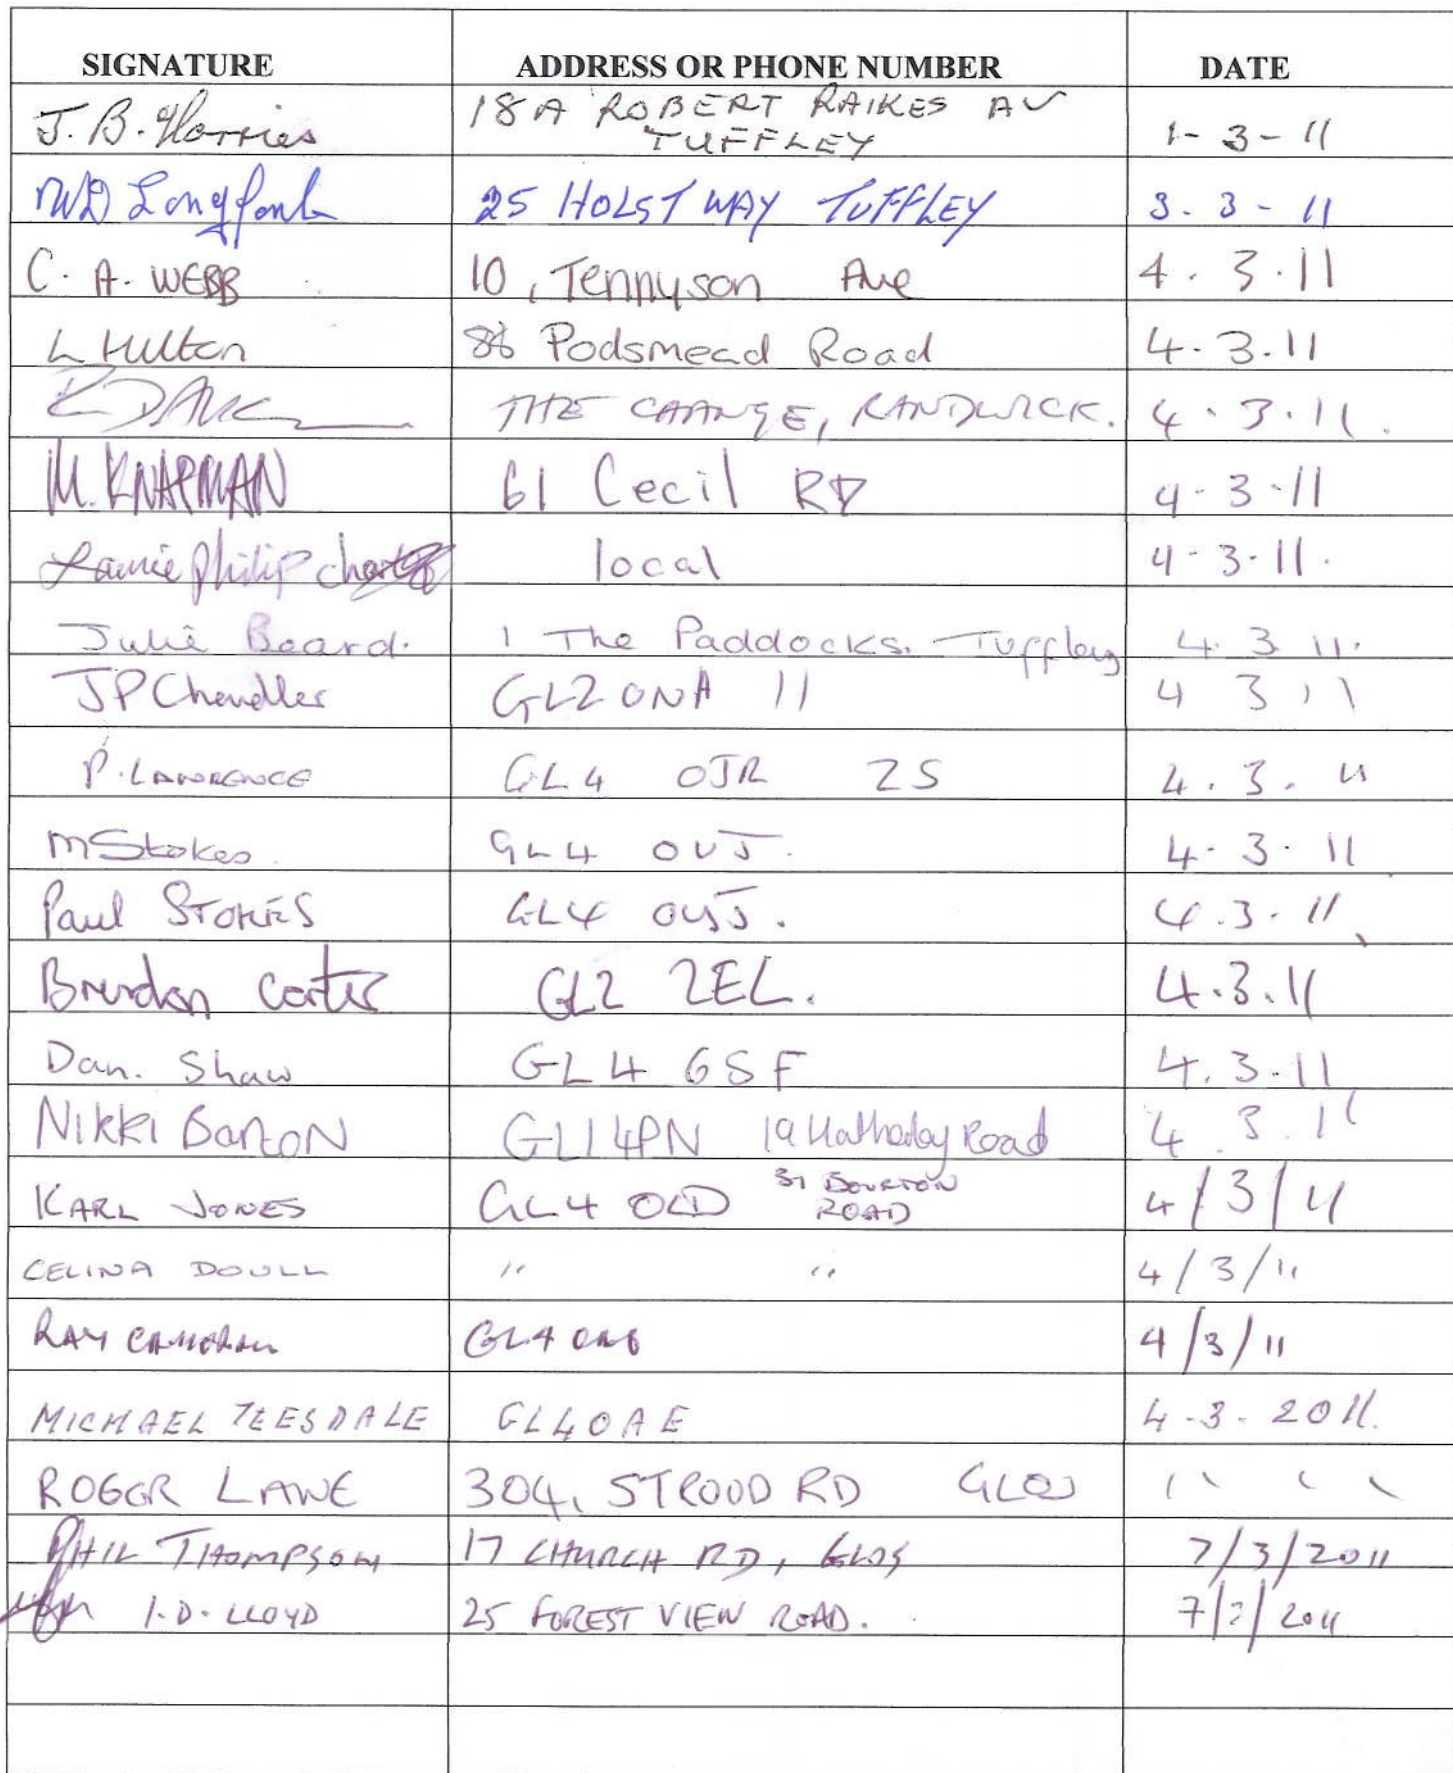 SIGNATURE ADDRESS OR PHONE NUMBER DATE
J. B. Harries 18A ROBERT RAIKES AV
TUFFLEY 1-3-11
25 HOLST WAY TUFFLEY 3.3-11
C. A. WEBB 10, Tennyson Ave 4.3.11
L Hulton 86 Podsmead Road 4.3.11
THE GRANGE, RANDWICK. 4.3.11.
M. KNAPMAN 61 Cecil RD 4-3-11
Philip local 4-3-11.
Julie Beard. 1 The Paddocks. Tuffley 4.3 11.
JP Chandler GL2 0NA 11 4 3 11
P. LAWRENCE GL4 0JR 25 4.3.11
M Stokes. GL4 0UJ. 4.3.11
Paul STOKES GL4 0UJ. 4.3.11
Brendon Carter GL2 2EL. 4.3.11
Dan. Shaw GL4 6SF 4.3.11
NIKKI BARTON GL1 4PN 19 Road 4.3.11
KARL JONES GL4 0LD 31 BOURTON
ROAD 4/3/11
CELINA DOULL " " 4/3/11
RAY GL4 4/3/11
MICHAEL TEESDALE GL4 0AE 4.3.2011.
ROGER LANE 304, STROUD RD GLOS " "
PHIL THOMPSON 17 CHURCH RD, GLOS 7/3/2011
I.D. LLOYD 25 FOREST VIEW ROAD. 7/3/2011